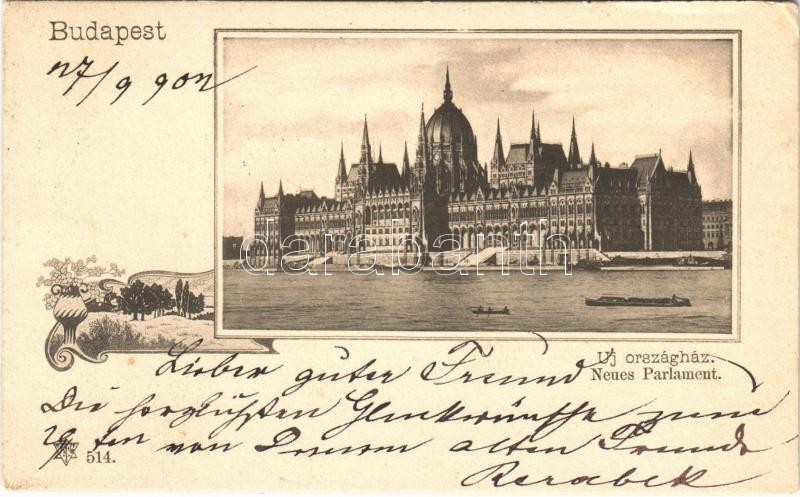 Budapest
27/9 902
darabanth
Uj országház.
Neues Parlament.
Lieber guter Freund
Die herzlichsten Glückwünsche zum
29ten von Deinem alten Freunde
514.